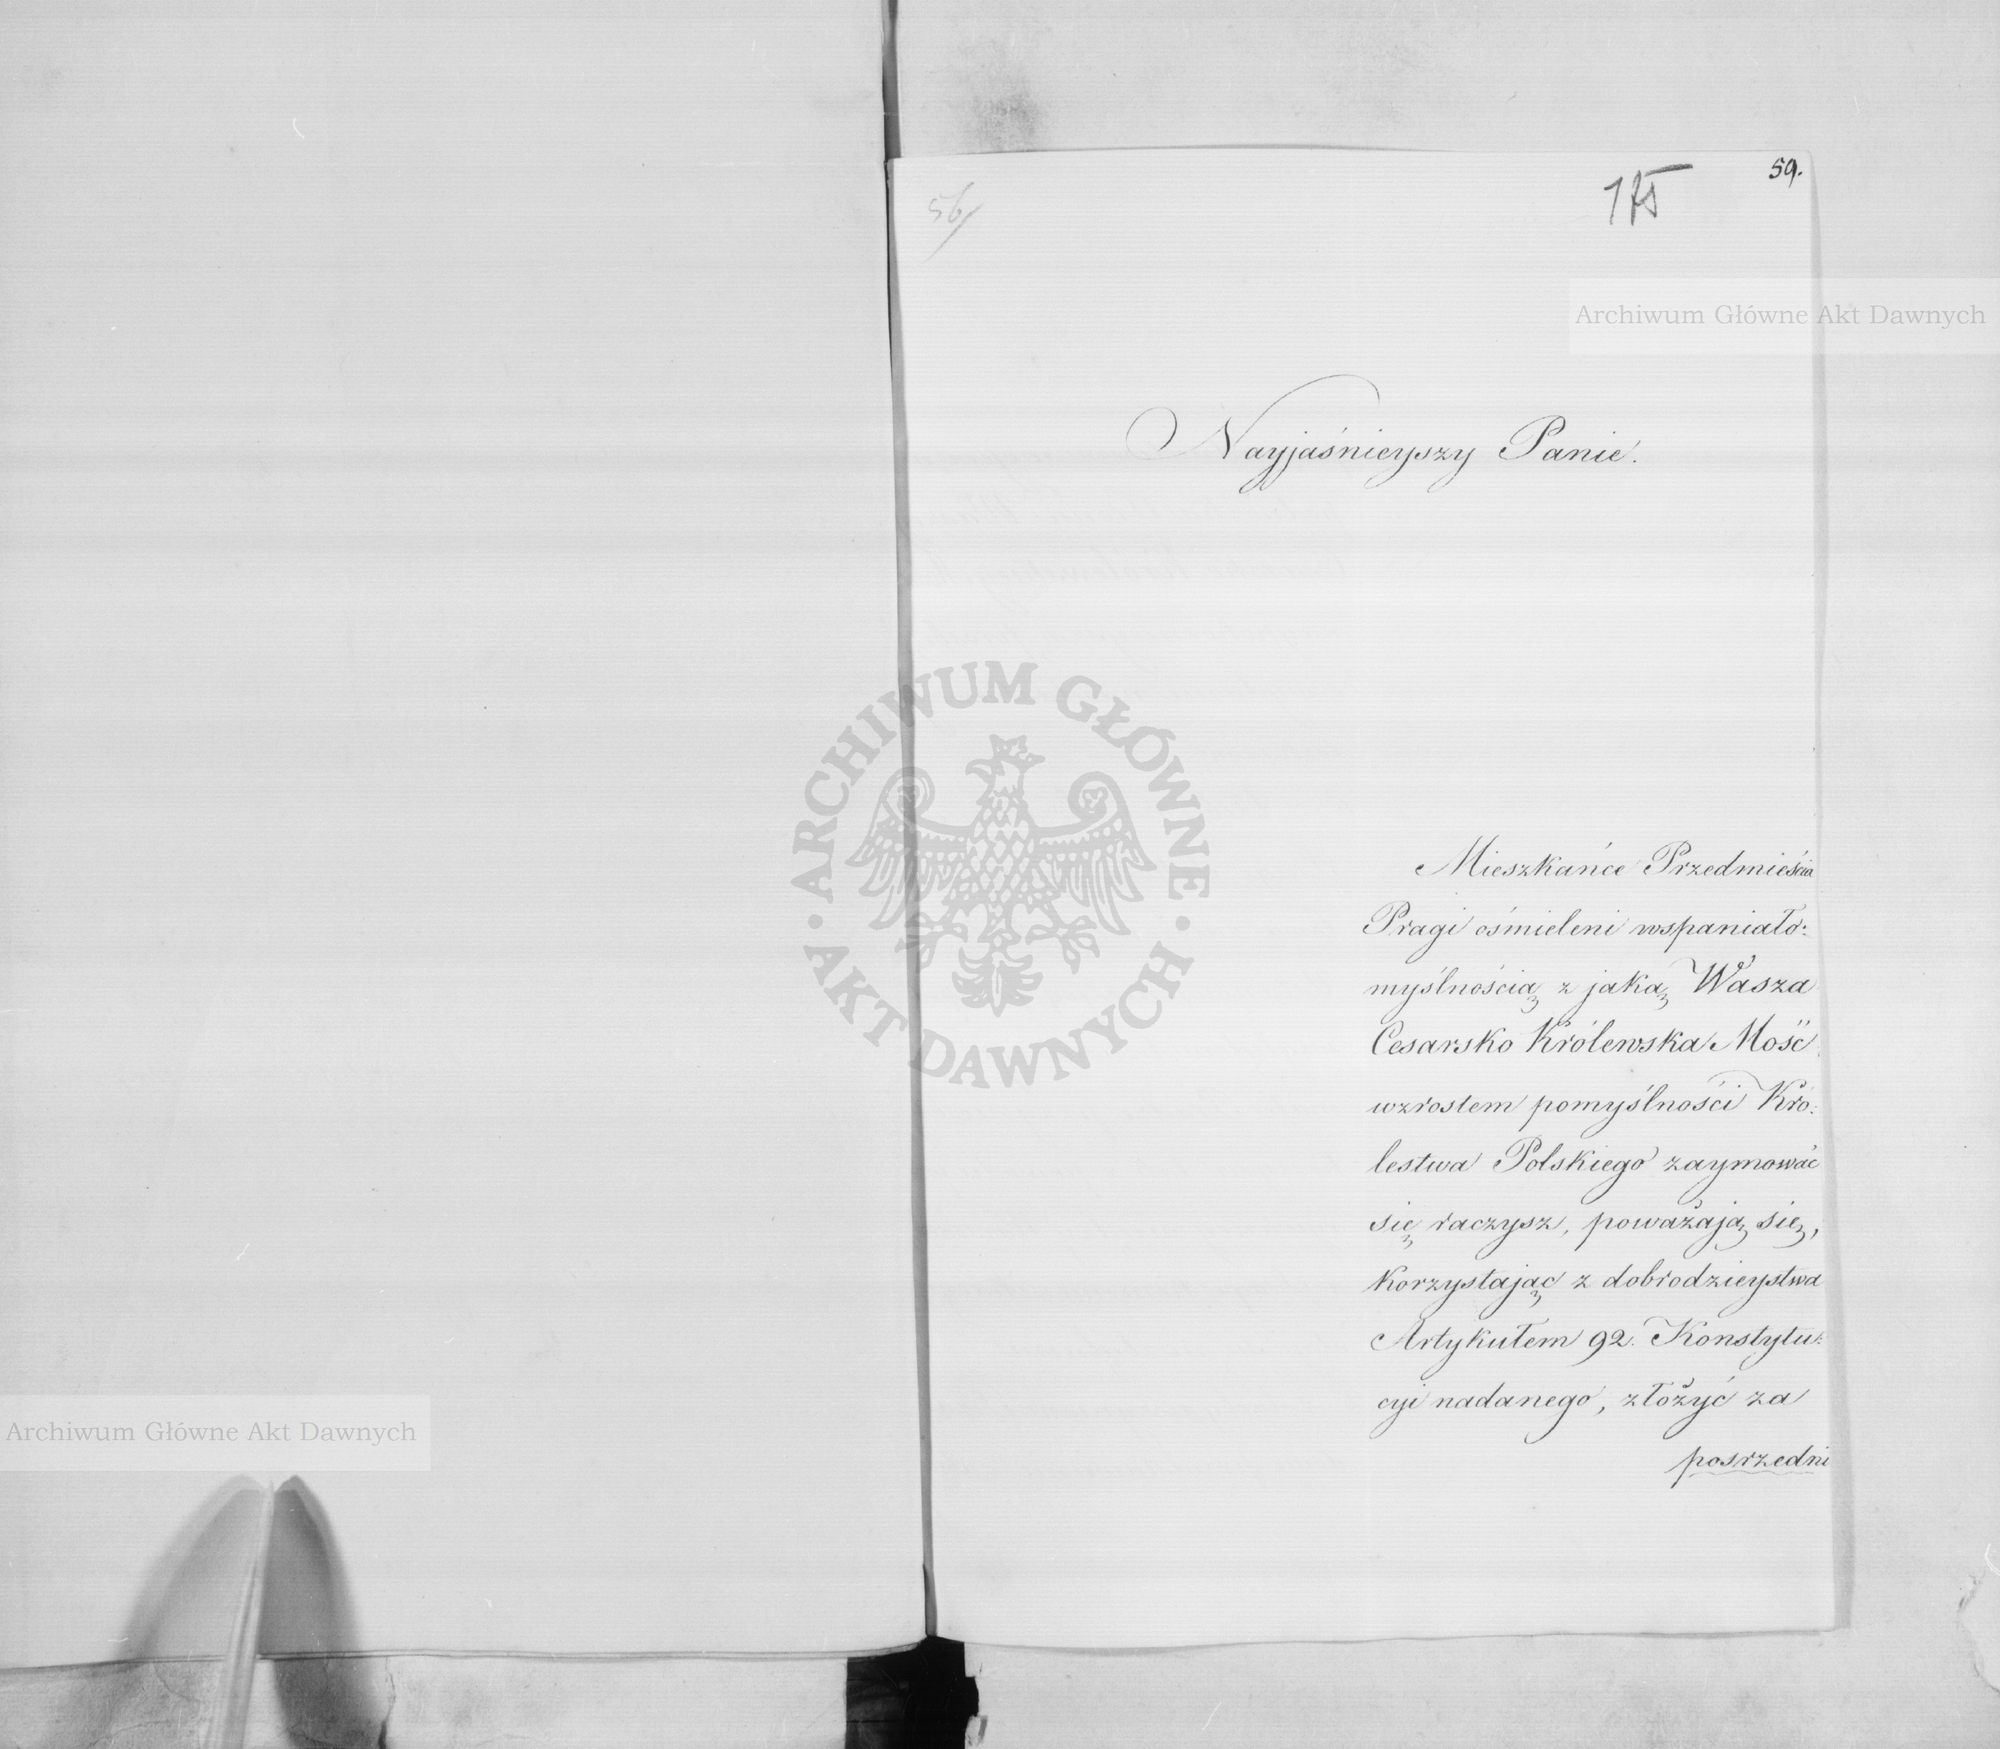 59.
175
56/
Archiwum Główne Akt Dawnych
Nayjaśnieyszy Panie.
ARCHIWUM GŁÓWNE
AKT DAWNYCH
Mieszkańce Przedmieścia
Pragi ośmieleni wspaniało:
myślnością z jaką Wasza
Cesarsko Królewska Mość
wzrostem pomyślności Kró:
lestwa Polskiego zaymować
się raczysz, poważają się,
korzystając z dobrodzieystwa
Artykułem 92. Konstytu:
cyi nadanego, złożyć za
posrzedni
Archiwum Główne Akt Dawnych